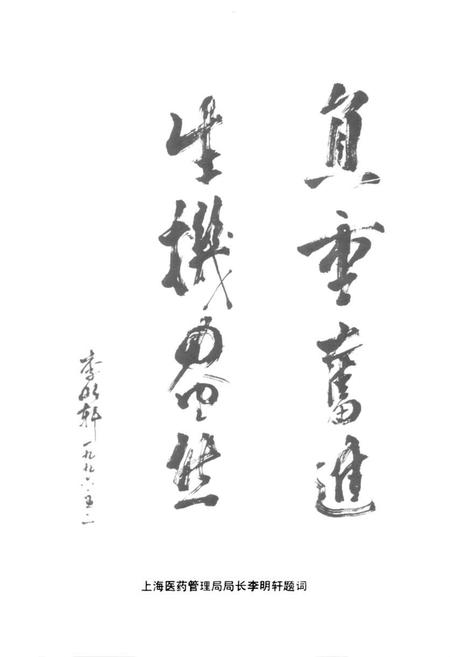 負重奮進
生機盎然
李明轩 一九九六.五.二
上海医药管理局局长李明轩题词